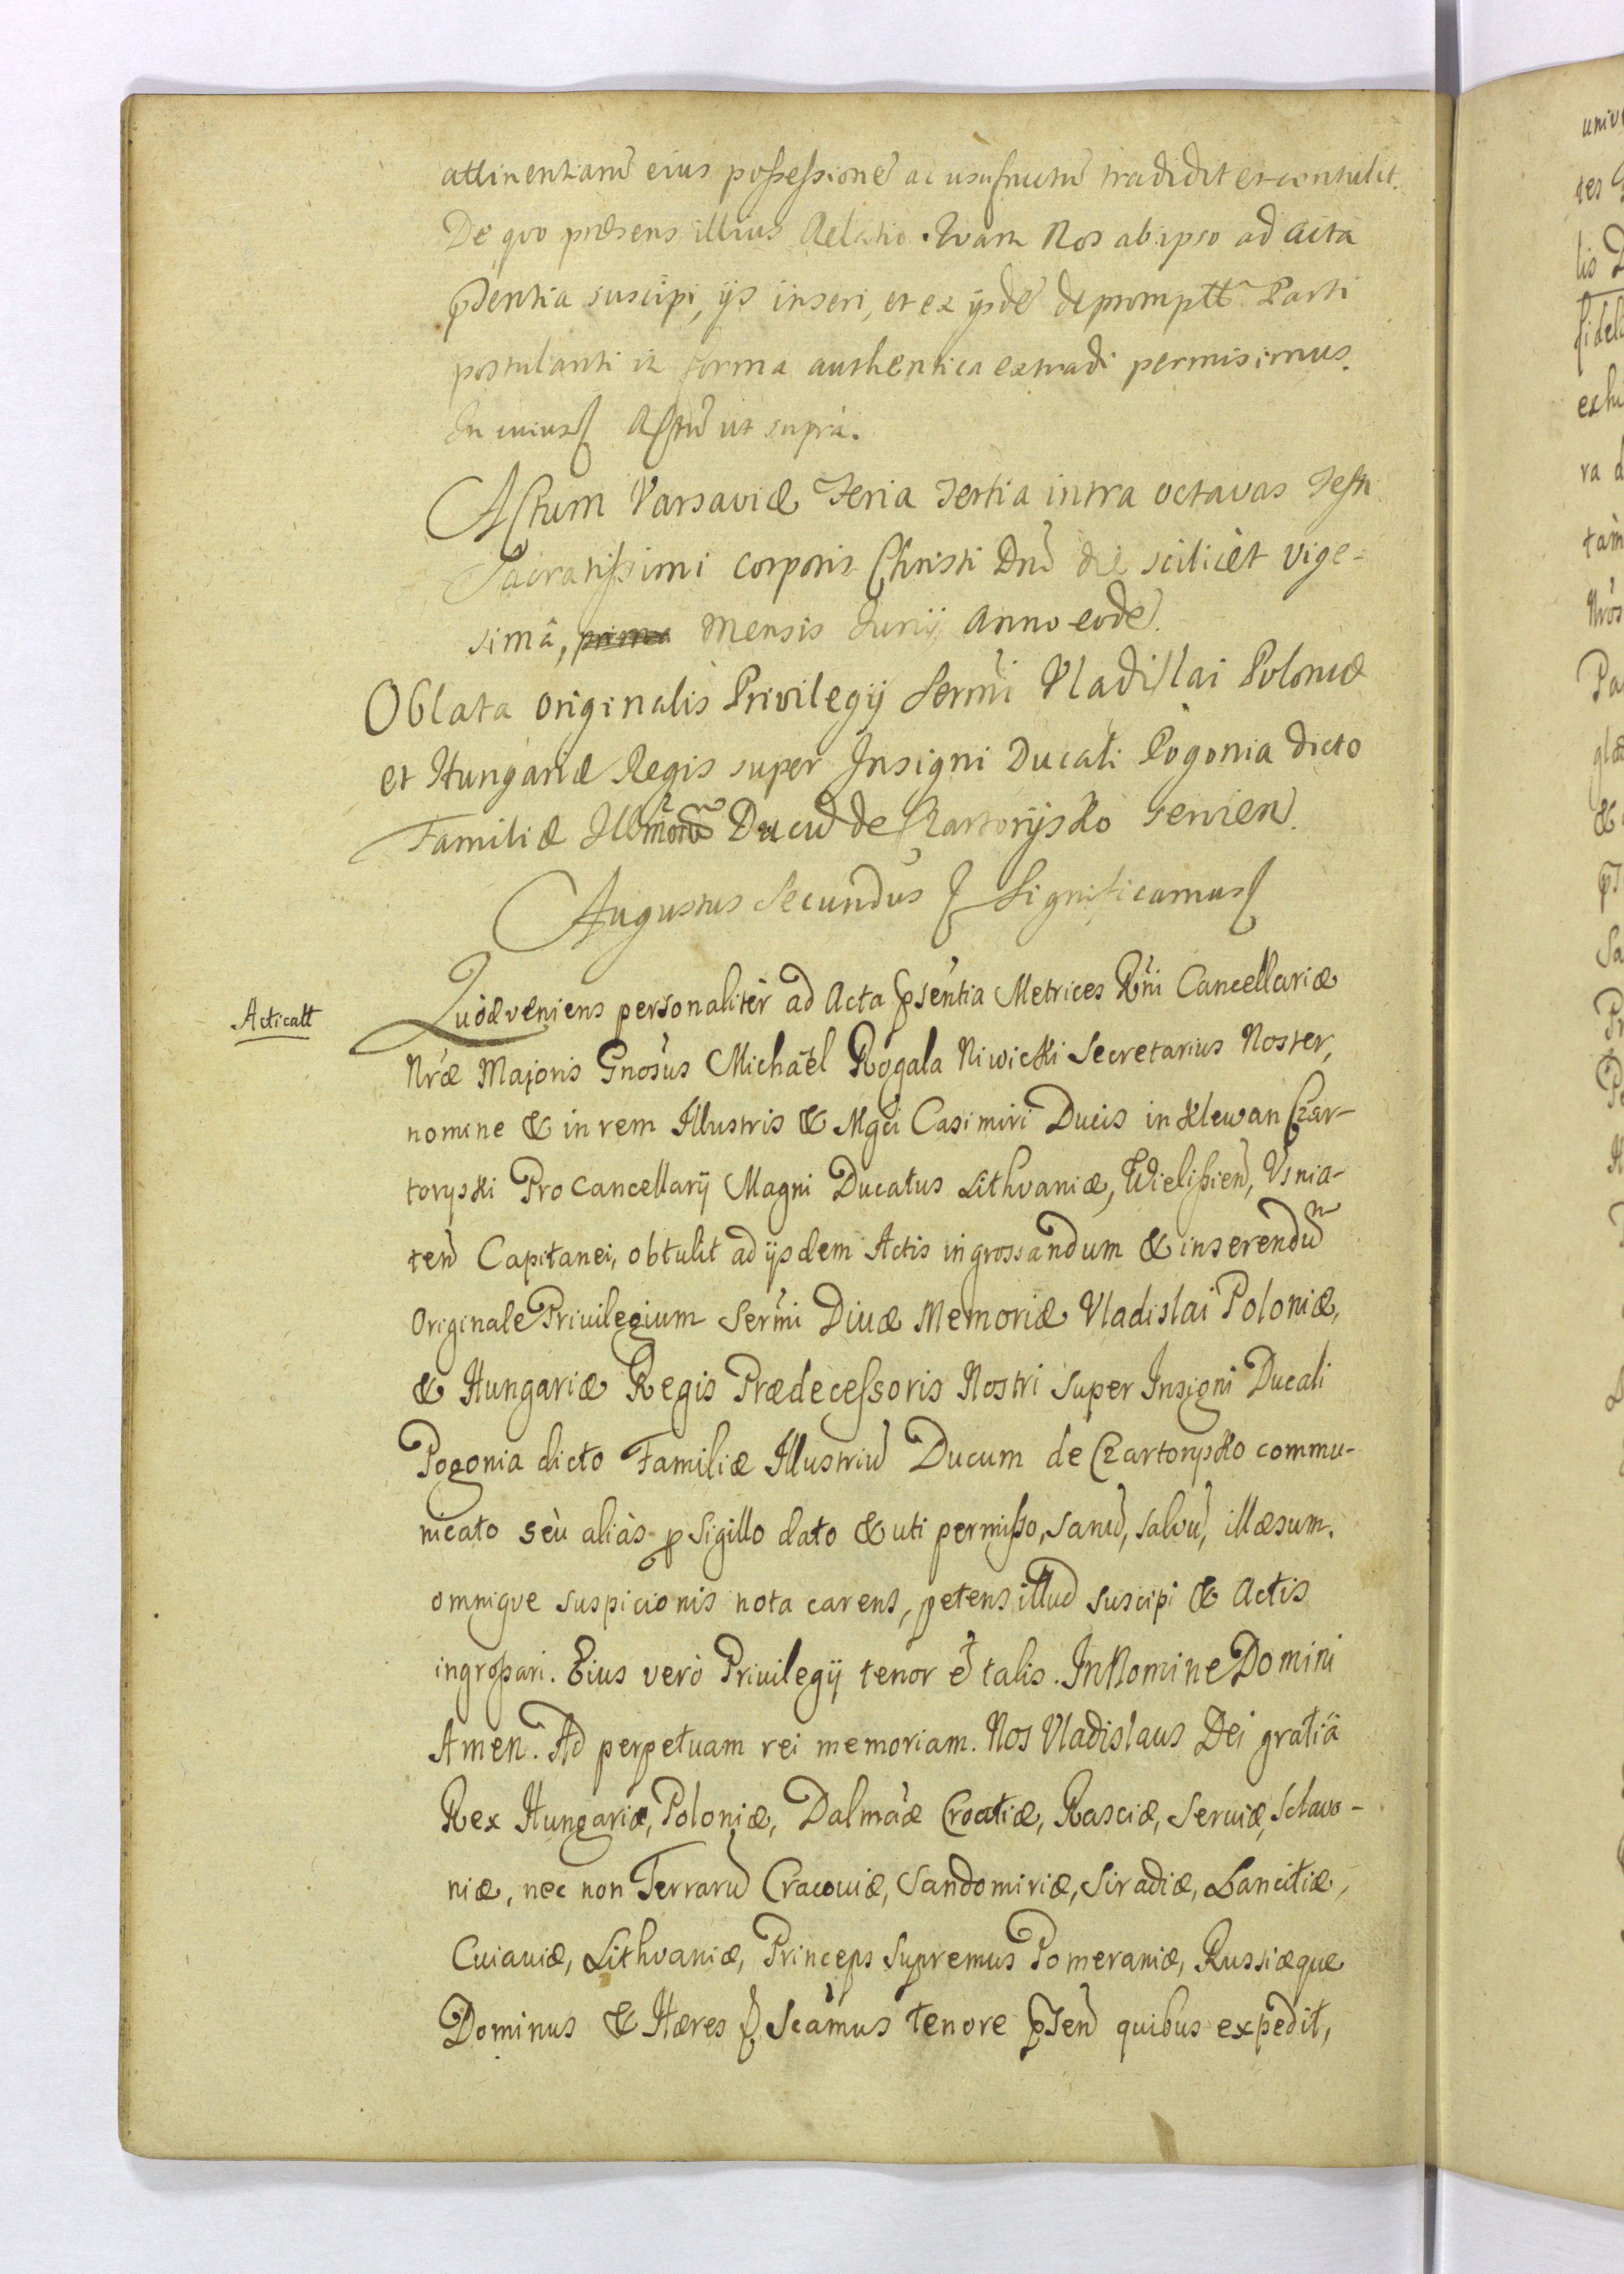 attinentiarũ eius possessionẽ ac usufructũ tradidit et contulit.
De quo præsens illius Relatio. Quam Nos ab ipso ad acta
pñsentia suscipi, ijs inseri, et ex ijsdẽ depromptt Parti
postulanti in forma authentica extradi permisimus.
In cuius Actũ ut suprà.
Actum Varsaviæ Feria Tertia intra octavas Festi
Sacratissimi Corporis Christi Dnĩ die scilicèt vige-
simâ, prima Mensis Junij Anno eodẽ.
Oblata Originalis Privilegij Sermi Vladislai Poloniæ
et Hungariæ Regis super Insigni Ducali Pogonia dicto
Familiæ Illmorũ Ducũ de Czartoryjsko servien.
Augustus Secundus Significamus
Acticatt
Quòd veniens personalitèr ad Acta psentia Metrices Rñi Cancellariæ
Nræ Majoris Gnosus Michaël Rogala Niwicki Secretarius Noster,
nomine & in rem Illustris & Mgci Casimiri Ducis in Klewan Czar-
toryski Pro Cancellarij Magni Ducatus Lithvaniæ, Wielissień, Usnia-
teñ Capitanei, obtulit ad ijsdem Actis ingrossandum & inserendũ
Originale Privilegium Sermi Divæ Memoriæ Vladislai Poloniæ,
& Hungariæ Regis Prædecessoris Nostri super Insigni Ducali
Pogonia dicto Familiæ Illustriũ Ducum de Czartorysko commu-
nicato sèu aliàs p Sigillo dato & uti permisso, sanũ, salvũ, illæsum.
omniqve suspicionis nota carens, petens illud suscipi & Actis
ingrossari. Eius verò Privilegij tenor ẽ talis. In Nomine Domini
Amen. Ad perpetuam rei memoriam. Nos Vladislaus Dei gratiâ
Rex Hungariæ, Poloniæ, Dalmaæ Croatiæ, Rasciæ, Serviæ, Sclavo-
niæ, nec non Terrarũ Cracoviæ, Sandomiriæ, Siradiæ, Lancitiæ,
Cuiaviæ, Lithvaniæ, Princeps Supremus Pomeraniæ, Russiæque
Dominus & Hæres Scamus tenore psen quibus expedit,